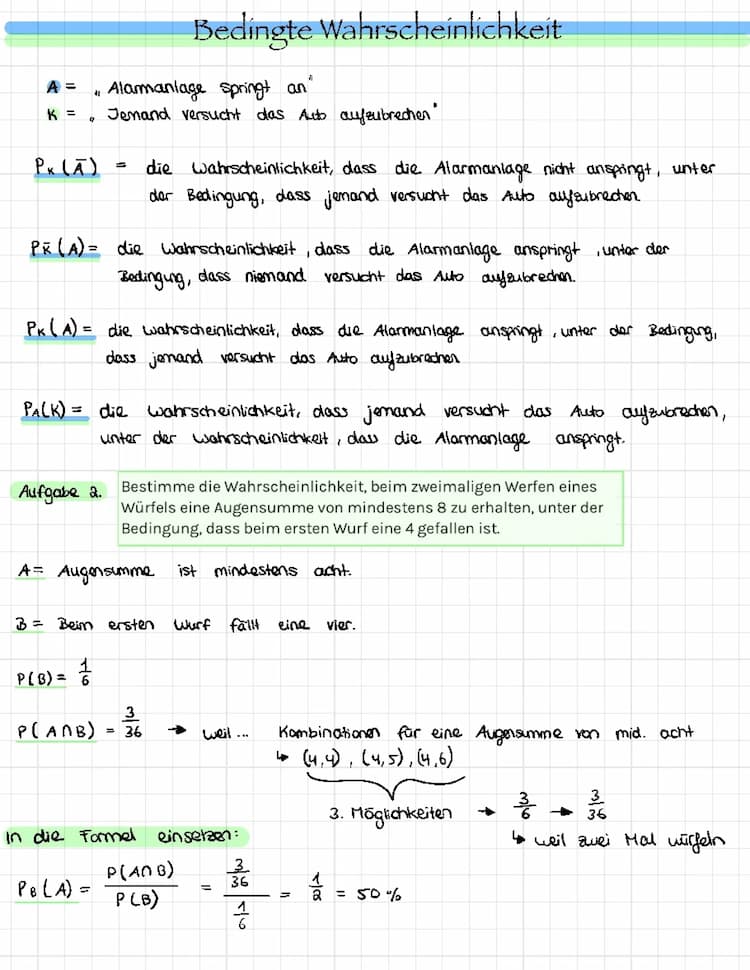 Bedingte Wahrscheinlichkeit
A = „Alarmanlage springt an"
K = „Jemand versucht das Auto aufzubrechen"
Pₖ(Ā) = die Wahrscheinlichkeit, dass die Alarmanlage nicht anspringt, unter
der Bedingung, dass jemand versucht das Auto aufzubrechen
P_K̄(A) = die Wahrscheinlichkeit, dass die Alarmanlage anspringt, unter der
Bedingung, dass niemand versucht das Auto aufzubrechen.
Pₖ(A) = die Wahrscheinlichkeit, dass die Alarmanlage anspringt, unter der Bedingung,
dass jemand versucht das Auto aufzubrechen
P_A(K) = die Wahrscheinlichkeit, dass jemand versucht das Auto aufzubrechen,
unter der Wahrscheinlichkeit, dass die Alarmanlage anspringt.
Aufgabe 2.
Bestimme die Wahrscheinlichkeit, beim zweimaligen Werfen eines
Würfels eine Augensumme von mindestens 8 zu erhalten, unter der
Bedingung, dass beim ersten Wurf eine 4 gefallen ist.
A = Augensumme ist mindestens acht.
B = Beim ersten Wurf fällt eine vier.
P(B) = 1/6
P(A∩B) = 3/36 → weil... Kombinationen für eine Augensumme von mid. acht
↳ (4,4), (4,5), (4,6)
3. Möglichkeiten → 3/6 → 3/36
↳ weil zwei Mal würfeln
in die Formel einsetzen:
P_B(A) = P(A∩B)/P(B) = (3/36)/(1/6) = 1/2 = 50 %